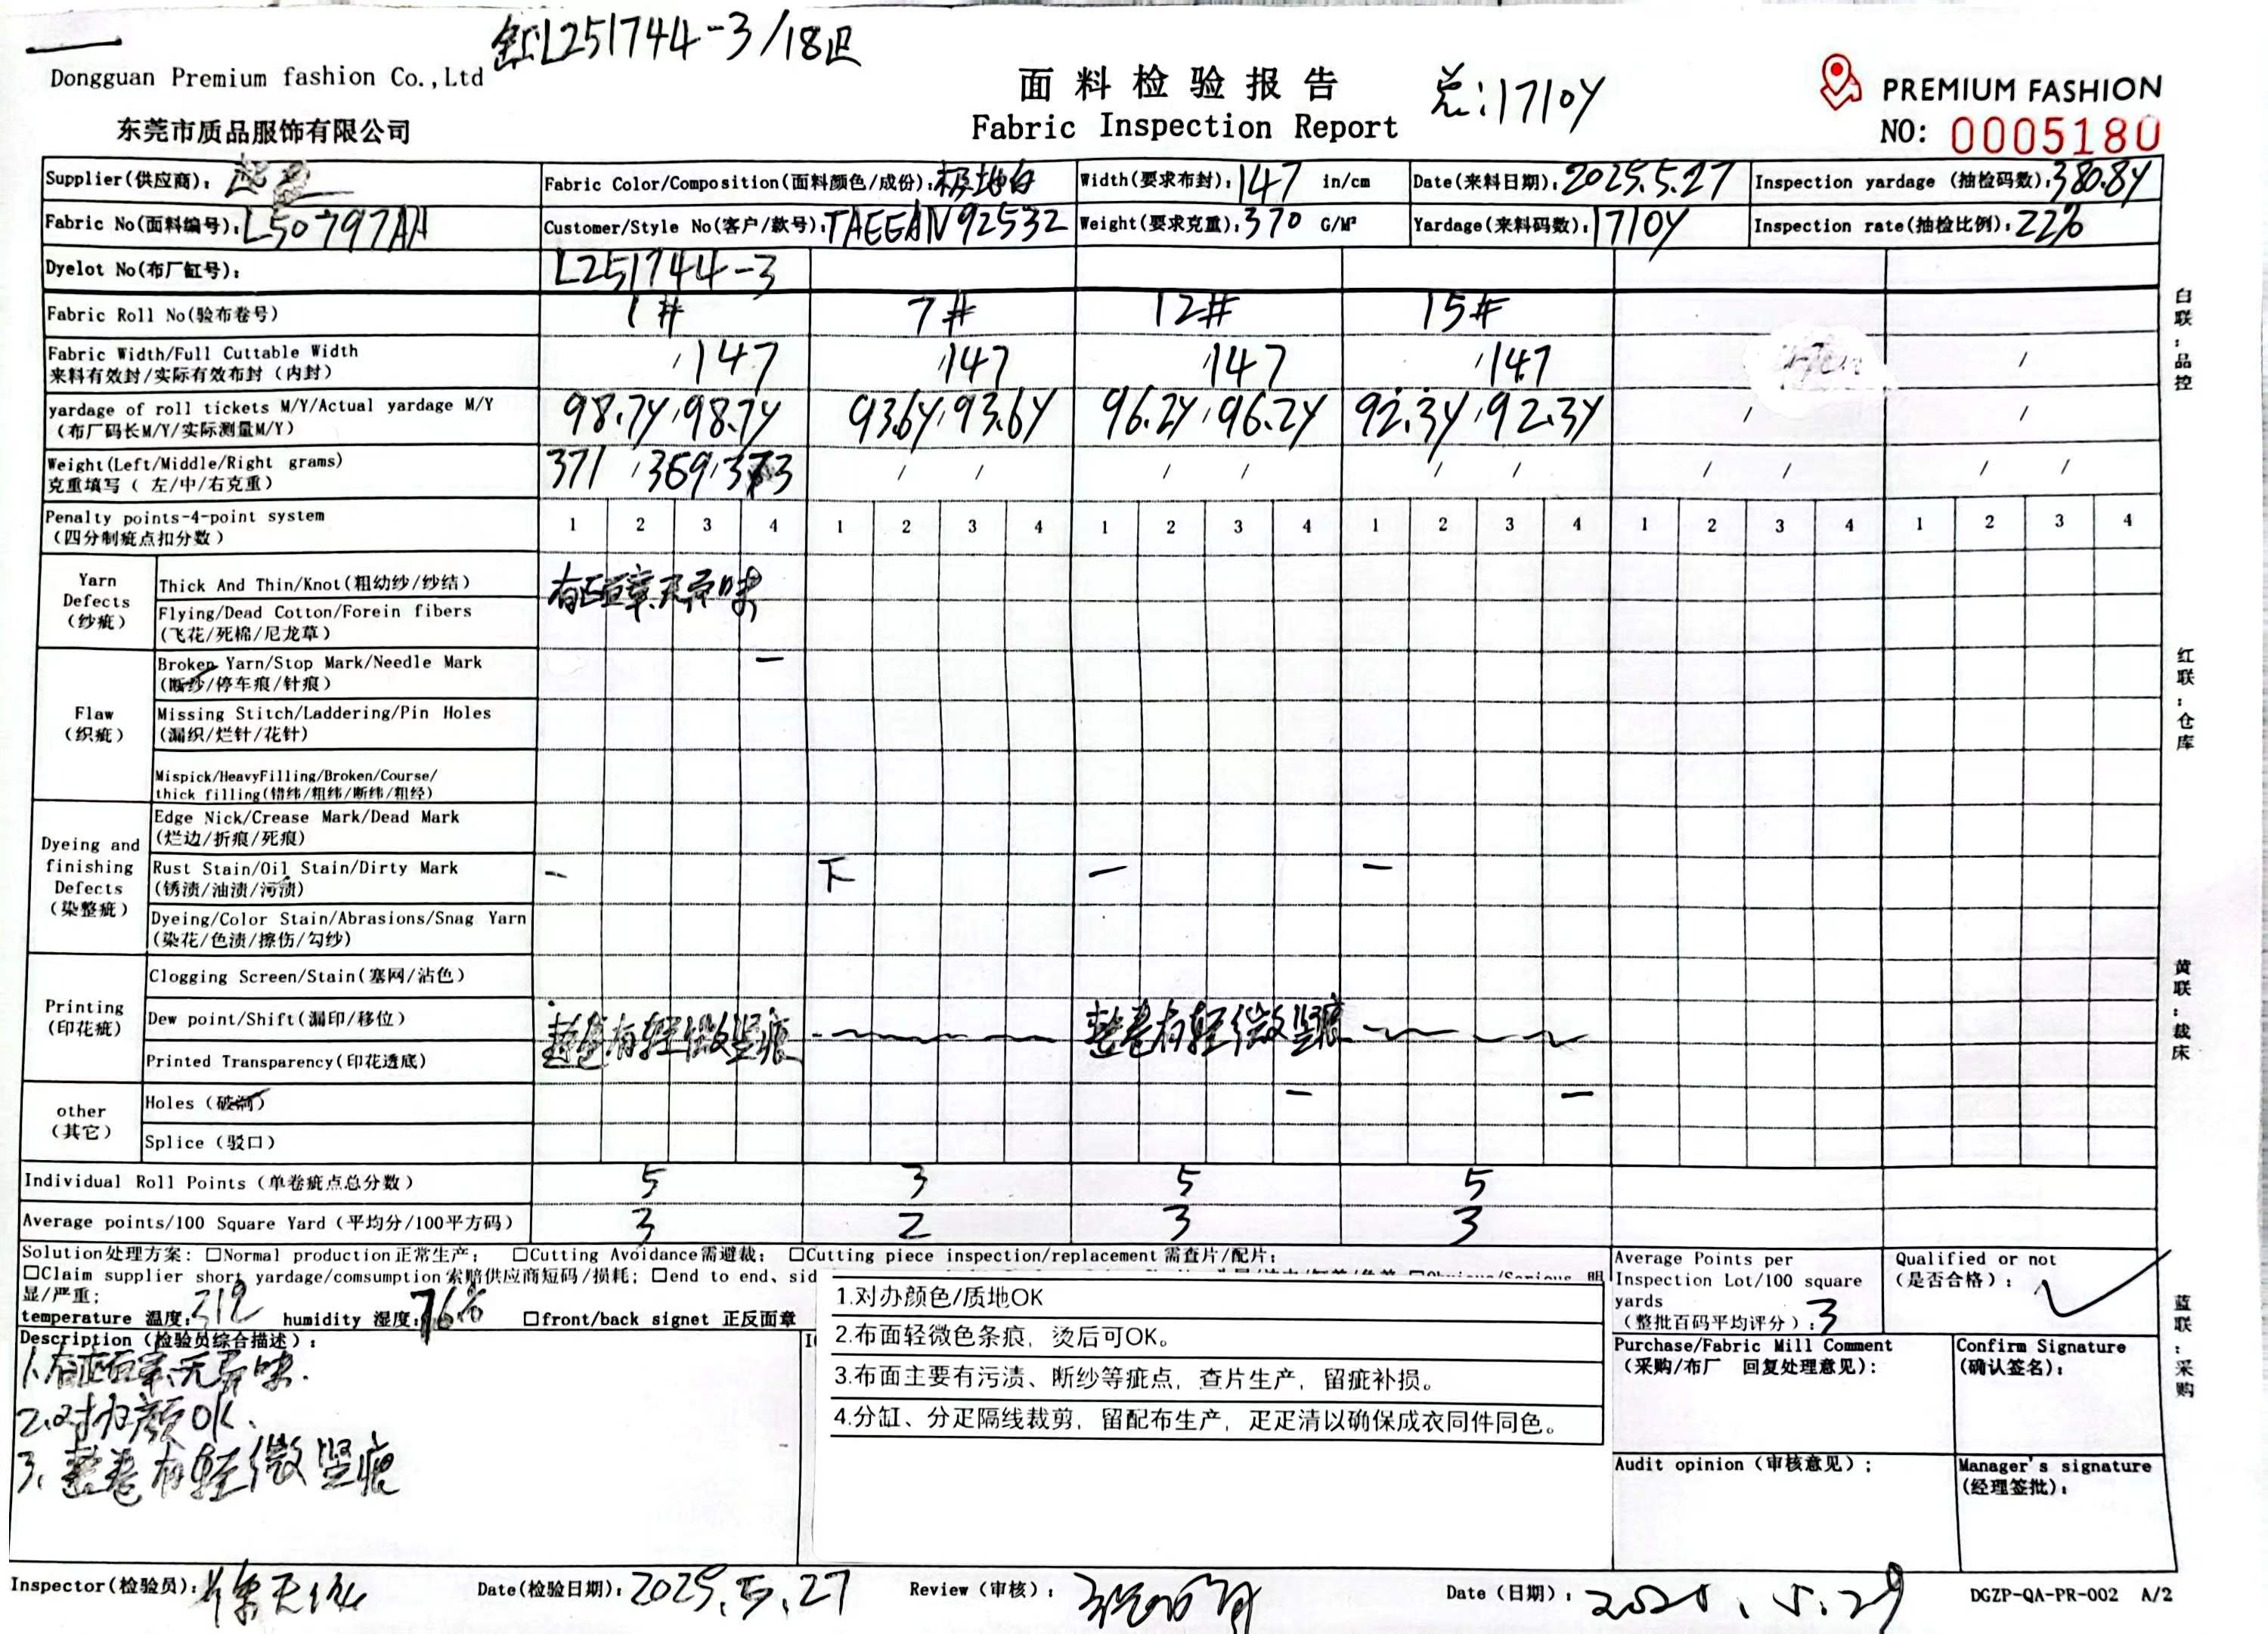 缸L251744-3/18疋
Dongguan Premium fashion Co.,Ltd
东莞市质品服饰有限公司
面料检验报告
Fabric Inspection Report
总:1710Y
PREMIUM FASHION
NO: 0005180
Supplier(供应商):
Fabric Color/Composition(面料颜色/成份):极地白
Width(要求布封):147 in/cm
Date(来料日期):2025.5.27
Inspection yardage (抽检码数):380.8Y
Fabric No(面料编号):L50797AH
Customer/Style No(客户/款号):TAEEAN92532
Weight(要求克重):370 G/M²
Yardage(来料码数):1710Y
Inspection rate(抽检比例):22%
Dyelot No(布厂缸号): L251744-3
Fabric Roll No(验布卷号) 1# 7# 12# 15#
Fabric Width/Full Cuttable Width
来料有效封/实际有效布封(内封) /147 /147 /147 /147 /
yardage of roll tickets M/Y/Actual yardage M/Y
(布厂码长M/Y/实际测量M/Y) 98.7Y/98.7Y 93.6Y/93.6Y 96.2Y/96.2Y 92.3Y/92.3Y / /
Weight(Left/Middle/Right grams)
克重填写( 左/中/右克重) 371 /369/373 / / / / / / / / / /
Penalty points-4-point system
(四分制疵点扣分数) 1 2 3 4 1 2 3 4 1 2 3 4 1 2 3 4 1 2 3 4 1 2 3 4
Yarn Defects (纱疵)
Thick And Thin/Knot(粗幼纱/纱结)
有正面章无异味
Flying/Dead Cotton/Forein fibers
(飞花/死棉/尼龙草)
Flaw (织疵)
Broken Yarn/Stop Mark/Needle Mark
(断纱/停车痕/针痕) 一
Missing Stitch/Laddering/Pin Holes
(漏织/烂针/花针)
Mispick/HeavyFilling/Broken/Course/
thick filling(错纬/粗纬/断纬/粗经)
Dyeing and finishing Defects (染整疵)
Edge Nick/Crease Mark/Dead Mark
(烂边/折痕/死痕)
Rust Stain/Oil Stain/Dirty Mark
(锈渍/油渍/污渍) 一 下 一 一
Dyeing/Color Stain/Abrasions/Snag Yarn
(染花/色渍/擦伤/勾纱)
Printing (印花疵)
Clogging Screen/Stain(塞网/沾色)
Dew point/Shift(漏印/移位)
整卷有轻微竖痕 整卷有轻微竖痕
Printed Transparency(印花透底)
other (其它)
Holes (破洞) 一 一
Splice (驳口)
Individual Roll Points (单卷疵点总分数) 5 3 5 5
Average points/100 Square Yard (平均分/100平方码) 3 2 3 3
Solution处理方案: □Normal production正常生产; □Cutting Avoidance需避裁; □Cutting piece inspection/replacement 需查片/配片;
□Claim supplier short yardage/comsumption 索赔供应商短码/损耗; □end to end、sid
显/严重;
temperature 温度: 31℃ humidity 湿度: 76% □front/back signet 正反面章
Average Points per
Inspection Lot/100 square
yards
(整批百码平均评分): 3
Qualified or not
(是否合格): ✓
Description (检验员综合描述):
1.有正面章无异味.
2.对办颜OK.
3.整卷有轻微竖痕
1.对办颜色/质地OK
2.布面轻微色条痕，烫后可OK。
3.布面主要有污渍、断纱等疵点，查片生产，留疵补损。
4.分缸、分疋隔线裁剪，留配布生产，疋疋清以确保成衣同件同色。
Purchase/Fabric Mill Comment
(采购/布厂 回复处理意见):
Confirm Signature
(确认签名):
Audit opinion (审核意见);
Manager's signature
(经理签批):
Inspector(检验员):
Date(检验日期): 2025.5.27
Review (审核):
Date (日期): 2025.5.29
DGZP-QA-PR-002 A/2
白联:品控
红联:仓库
黄联:裁床
蓝联:采购